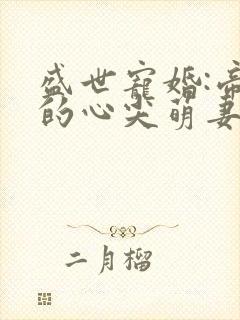 盛世寵婚:帝
的心尖萌妻
二月榴